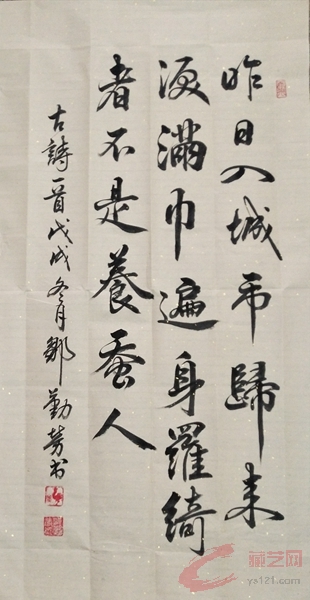 昨日入城市歸来
淚滿巾遍身羅綺
者不是養蚕人
古詩一首戊戌冬月鄒勤芳书
藏艺网
ys121.com